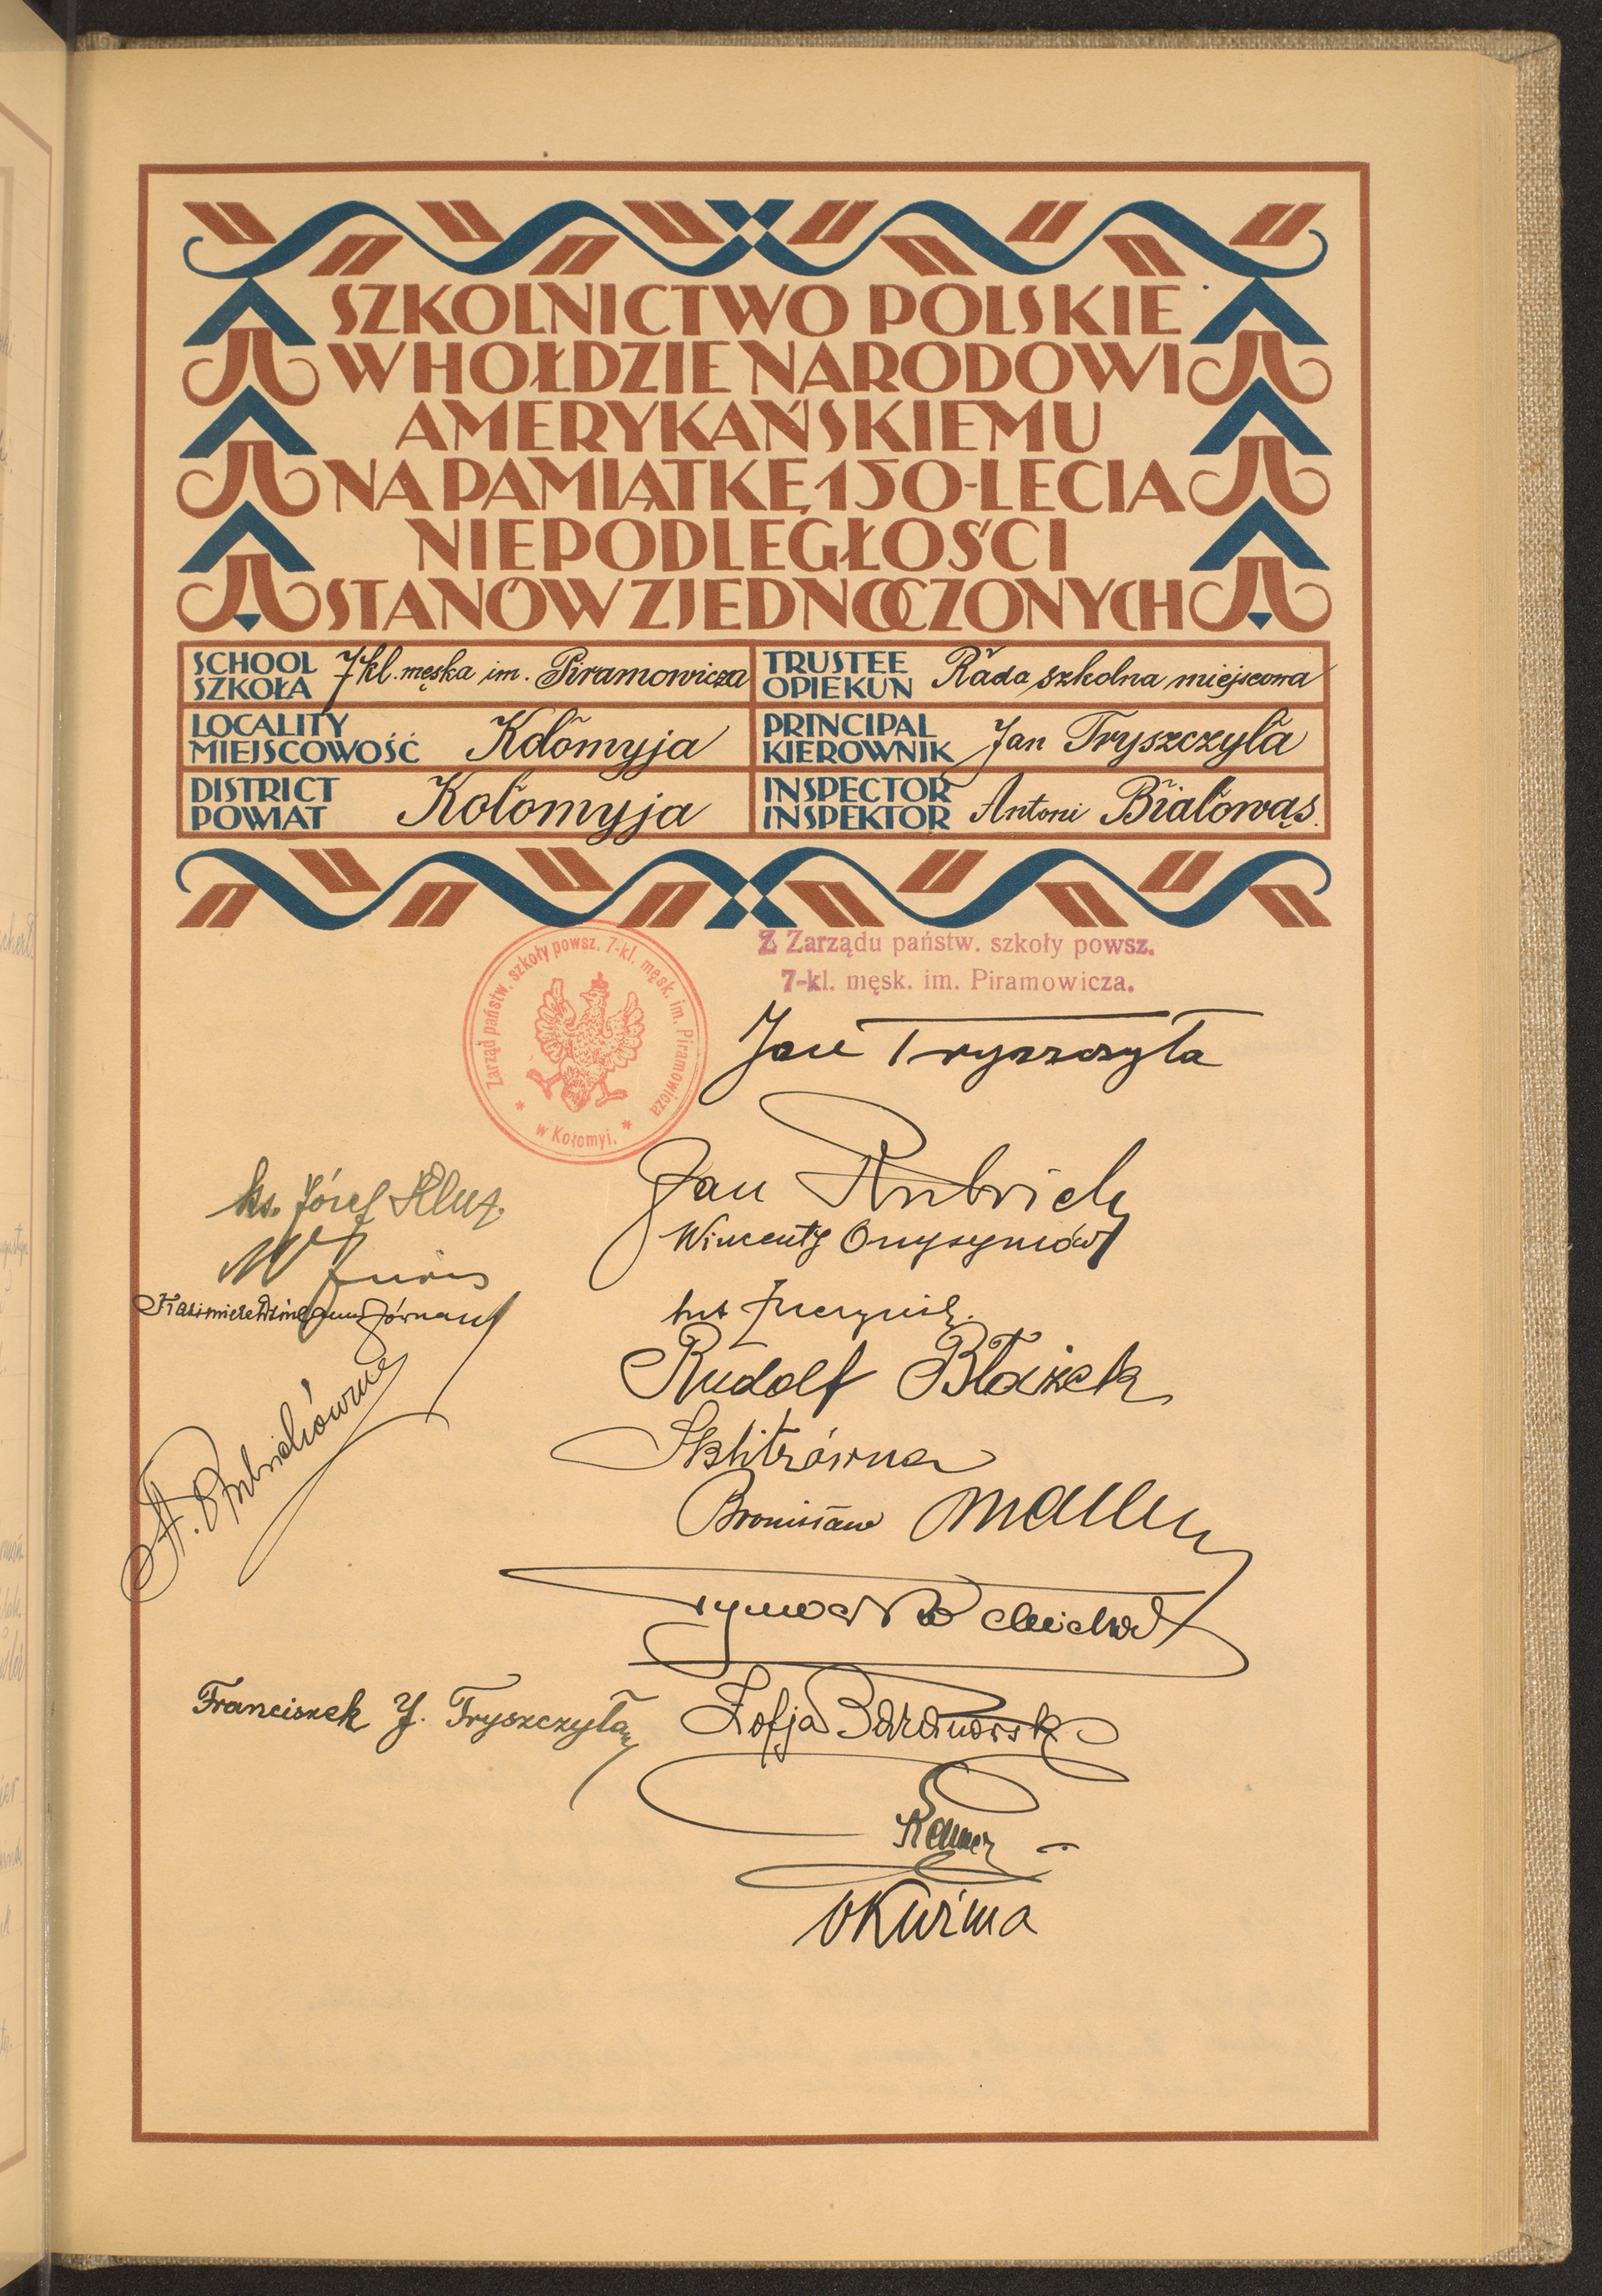 SZKOLNICTWO POLSKIE
W HOŁDZIE NARODOWI
AMERYKAŃSKIEMU
NA PAMIĄTKĘ 150-LECIA
NIEPODLEGŁOŚCI
STANÓW ZJEDNOCZONYCH
SCHOOL
SZKOŁA
7 kl. męska im. Piramowicza
TRUSTEE
OPIEKUN
Rada szkolna miejscowa
LOCALITY
MIEJSCOWOŚĆ
Kołomyja
PRINCIPAL
KIEROWNIK
Jan Tryszczyła
DISTRICT
POWIAT
Kołomyja
INSPECTOR
INSPEKTOR
Antoni Białowąs.
Zarząd państw. szkoły powsz. 7-kl. męsk. im. Piramowicza
* w Kołomyi. *
Z Zarządu państw. szkoły powsz.
7-kl. męsk. im. Piramowicza.
Jan Tryszczyła
Jan Rubrich
Wincenty Onysymów
ks. Józef Kluz.
Kazimiera
Rudolf Błażek
Bronisław
Franciszek J. Tryszczyła
Zofja Baranowska